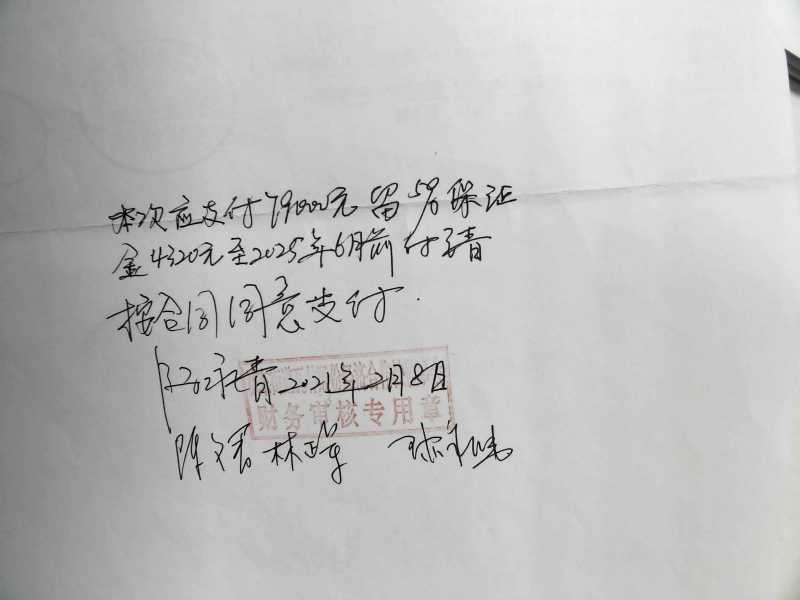 本次应支付79000元留5%保证
金4320元至2025年6月前付清
按合同同意支付.
2021年2月8日
财务审核专用章
林